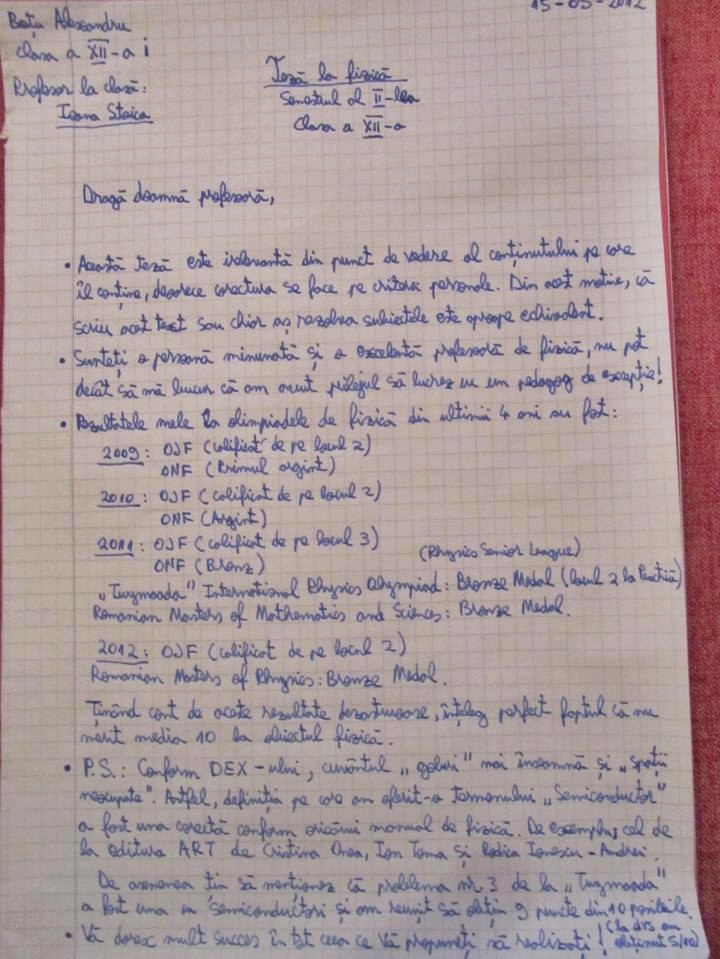 15-05-2012
Bațu Alexandru
Clasa a XII-a i
Profesor la clasă:
Ioana Stoica
Teză la fizică
Semestrul al II-lea
Clasa a XII-a
Dragă doamnă profesoară,
• Această teză este irelevantă din punct de vedere al conținutului pe care
îl conține, deoarece corectura se face pe criterii personale. Din acest motiv, că
scriu acest text sau chiar aș rezolva subiectele este aproape echivalent.
• Sunteți o persoană minunată și o excelentă profesoară de fizică, nu pot
decât să mă bucur că am avut prilejul să lucrez cu un pedagog de excepție!
• Rezultatele mele la olimpiadele de fizică din ultimii 4 ani au fost:
2009: OJF (calificat de pe locul 2)
ONF (Primul argint)
2010: OJF (calificat de pe locul 2)
ONF (Argint)
2011: OJF (calificat de pe locul 3)
ONF (Bronz)
(Physics Senior League)
„Tuymaada" International Physics Olympiad: Bronze Medal (locul 2 la Practică)
Romanian Masters of Mathematics and Sciences: Bronze Medal.
2012: OJF (calificat de pe locul 2)
Romanian Masters of Physics: Bronze Medal.
Ținând cont de aceste rezultate dezastruoase, înțeleg perfect faptul că nu
merit media 10 la obiectul fizică.
• P.S.: Conform DEX-ului, cuvântul „goluri" mai înseamnă și „spații
neocupate". Astfel, definiția pe care am oferit-o termenului „Semiconductor"
a fost una corectă conform oricărui manual de fizică. De exemplu, cel de
la editura ART de Cristina Onea, Ion Toma și Rodica Ionescu-Andrei.
De asemenea țin să menționez că problema nr. 3 de la „Tuymaada"
a fost una cu semiconductori și am reușit să obțin 9 puncte din 10 posibile.
(la dvs am
obținut 5/10)
• Vă doresc mult succes în tot ceea ce Vă propuneți să realizați!